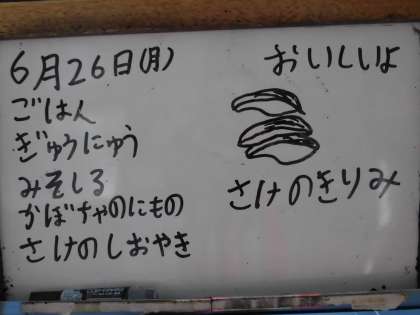 6月26日(月)
ごはん
ぎゅうにゅう
みそしる
かぼちゃのにもの
さけのしおやき
おいしいよ
さけのきりみ